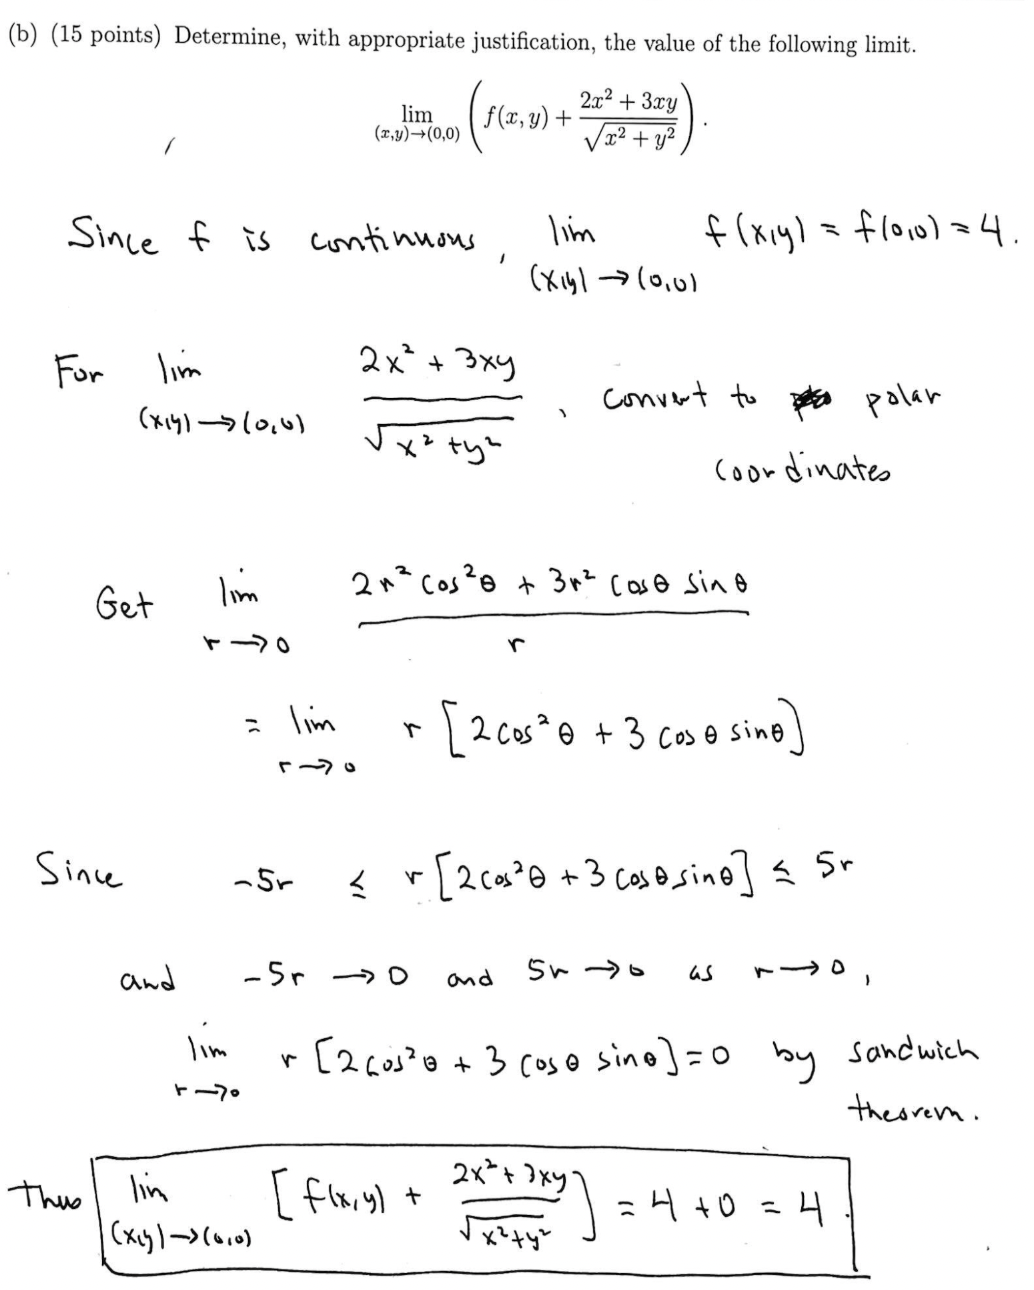 (b) (15 points) Determine, with appropriate justification, the value of the following limit.
lim_{(x,y)→(0,0)} ( f(x, y) + (2x² + 3xy)/√(x² + y²) ) .
Since f is continuous, lim_{(x,y)→(0,0)} f(x,y) = f(0,0) = 4.
For lim_{(x,y)→(0,0)} (2x² + 3xy)/√(x² + y²) , convert to polar
coordinates
Get lim_{r→0} (2r² cos²θ + 3r² cosθ sinθ)/r
= lim_{r→0} r [2cos²θ + 3 cosθ sinθ]
Since -5r ≤ r [2cos²θ + 3 cosθ sinθ] ≤ 5r
and -5r → 0 and 5r → 0 as r → 0 ,
lim_{r→0} r [2cos²θ + 3 cosθ sinθ] = 0 by sandwich
theorem.
Thus lim_{(x,y)→(0,0)} [ f(x,y) + (2x² + 3xy)/√(x² + y²) ] = 4 + 0 = 4.